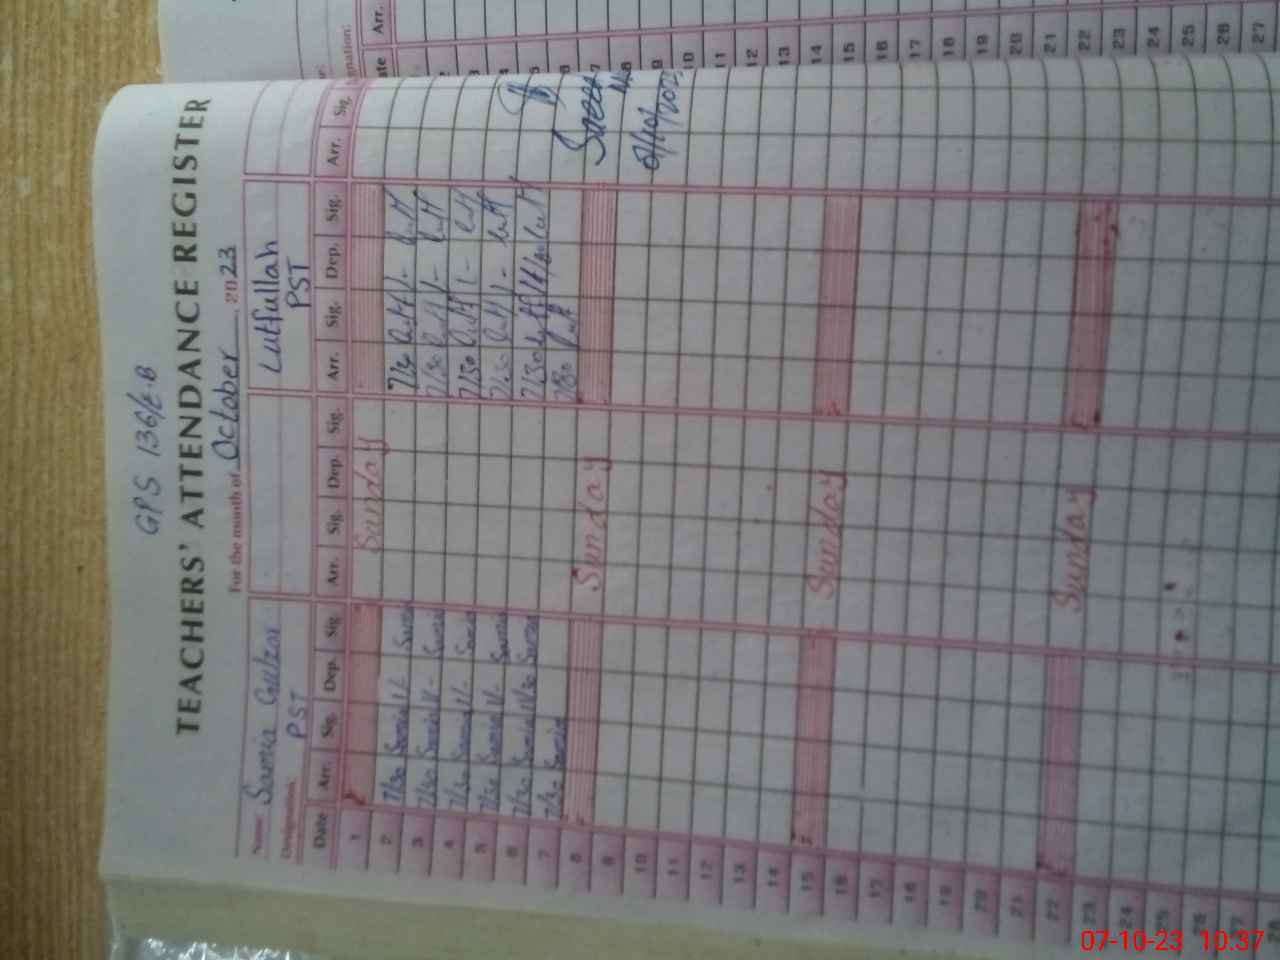 GPS 136/E.B
TEACHERS' ATTENDANCE REGISTER
For the month of October, 2023
Name: Samia Gulzar Lutfullah
Designation: PST PST
Date Arr. Sig. Dep. Sig. Arr. Sig. Dep. Sig. Arr. Sig. Dep. Sig. Arr. Sig.
1 Sunday
2 7/30 Samia 1/- Samia 7/30 Lutf 1/- Lutf
3 7/30 Samia 1/- Samia 7/30 Lutf 1/- Lutf
4 7/30 Samia 1/- Samia 7/30 Lutf 1/- Lutf
5 7/30 Samia 1/- Samia 7/30 Lutf 1/- Lutf
6 7/30 Samia 11/30 Samia 7/30 Lutf Lutf
7 7/30 Samia 7/30 Lutf
8 Sunday
9
10
11
12
13
14
15 Sunday
16
17
18
19
20
21
22 Sunday
23
24
25
26
27
28
Arr.
5
6
7
8
9
10
11
12
13
14
15
16
17
18
19
20
21
22
23
24
25
26
27
07-10-23 10:37